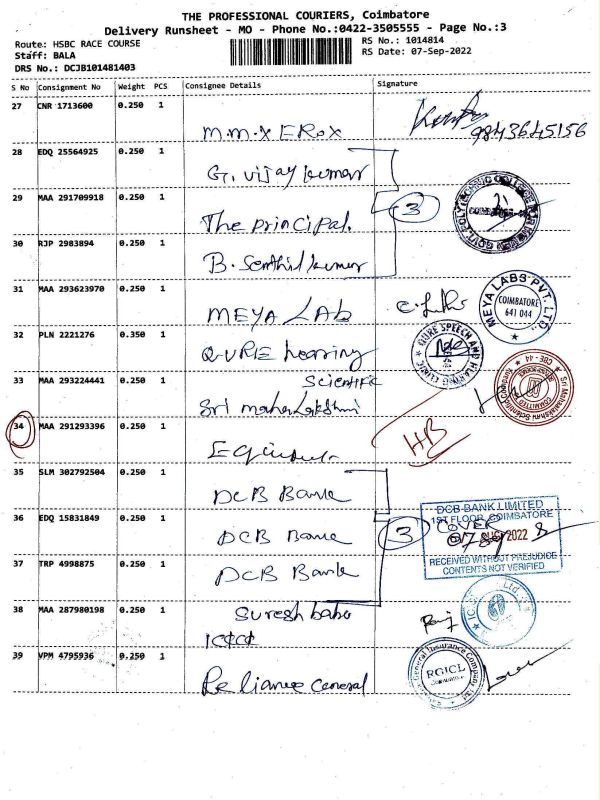 THE PROFESSIONAL COURIERS, Coimbatore
Delivery Runsheet - MO - Phone No.:0422-3505555 - Page No.:3
Route: HSBC RACE COURSE
RS No.: 1014814
Staff: BALA
RS Date: 07-Sep-2022
DRS No.: DCJB101481403
S No Consignment No Weight PCS Consignee Details Signature
27 CNR 1713600 0.250 1
M.M.X EROX
9843645156
28 EDQ 25564925 0.250 1
G. vijay kumar
29 MAA 291709918 0.250 1
The principal.
3
30 RJP 2983894 0.250 1
B. Senthil kumar
31 MAA 293623970 0.250 1
MEYA LAB
MEYA LABS PVT. LTD
COIMBATORE
641 044
32 PLN 2221276 0.350 1
QURE hearing
QURE SPEECH AND HEARING CLINIC
33 MAA 293224441 0.250 1
SCIENTIFIC
Sri mahaLakshmi
34 MAA 291293396 0.250 1
HB
35 SLM 302792504 0.250 1
DCB Bank
36 EDQ 15831849 0.250 1
DCB Bank
3
DCB BANK LIMITED
1ST FLOOR, COIMBATORE
COVER
2022
RECEIVED WITHOUT PREJUDICE
CONTENTS NOT VERIFIED
37 TRP 4998875 0.250 1
DCB Bank
38 MAA 287980198 0.250 1
Suresh babu
39 VPM 4795936 0.250 1
Reliance General
General Insurance Company
RGICL